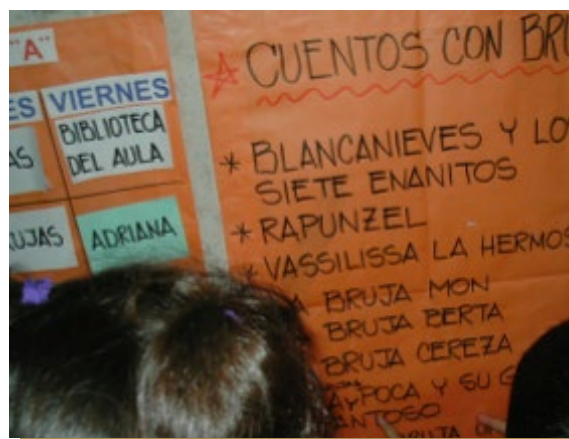 "A"
ES VIERNES
AS BIBLIOTECA
DEL AULA
UJAS ADRIANA
CUENTOS CON BRU
* BLANCANIEVES Y LO
SIETE ENANITOS
* RAPUNZEL
* VASSILISSA LA HERMOS
A BRUJA MON
BRUJA BERTA
BRUJA CEREZA
POCA Y SU G
ANTOSO